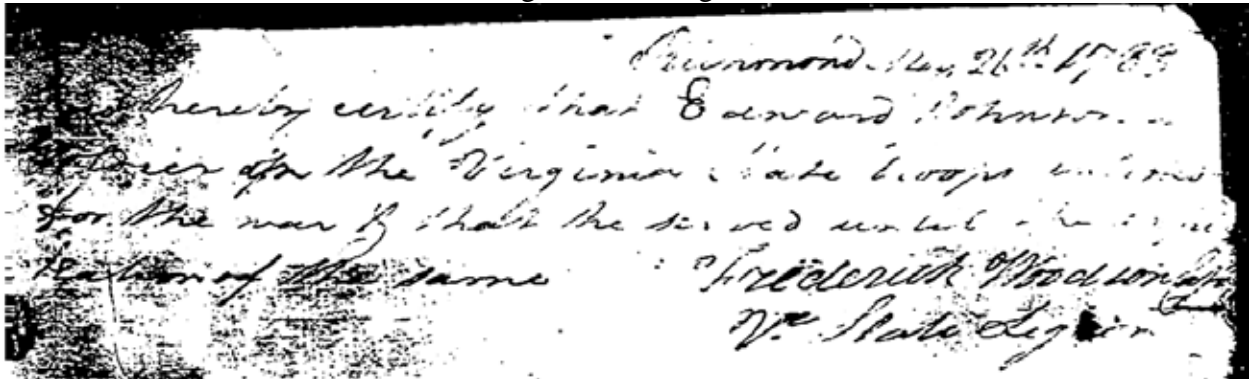 Richmond May 26th 1783
hereby certify that Edward Johnson a
Soldier in the Virginia State troops
for the war & that he served until the
of the same Frederick Woodson
Va State Legion